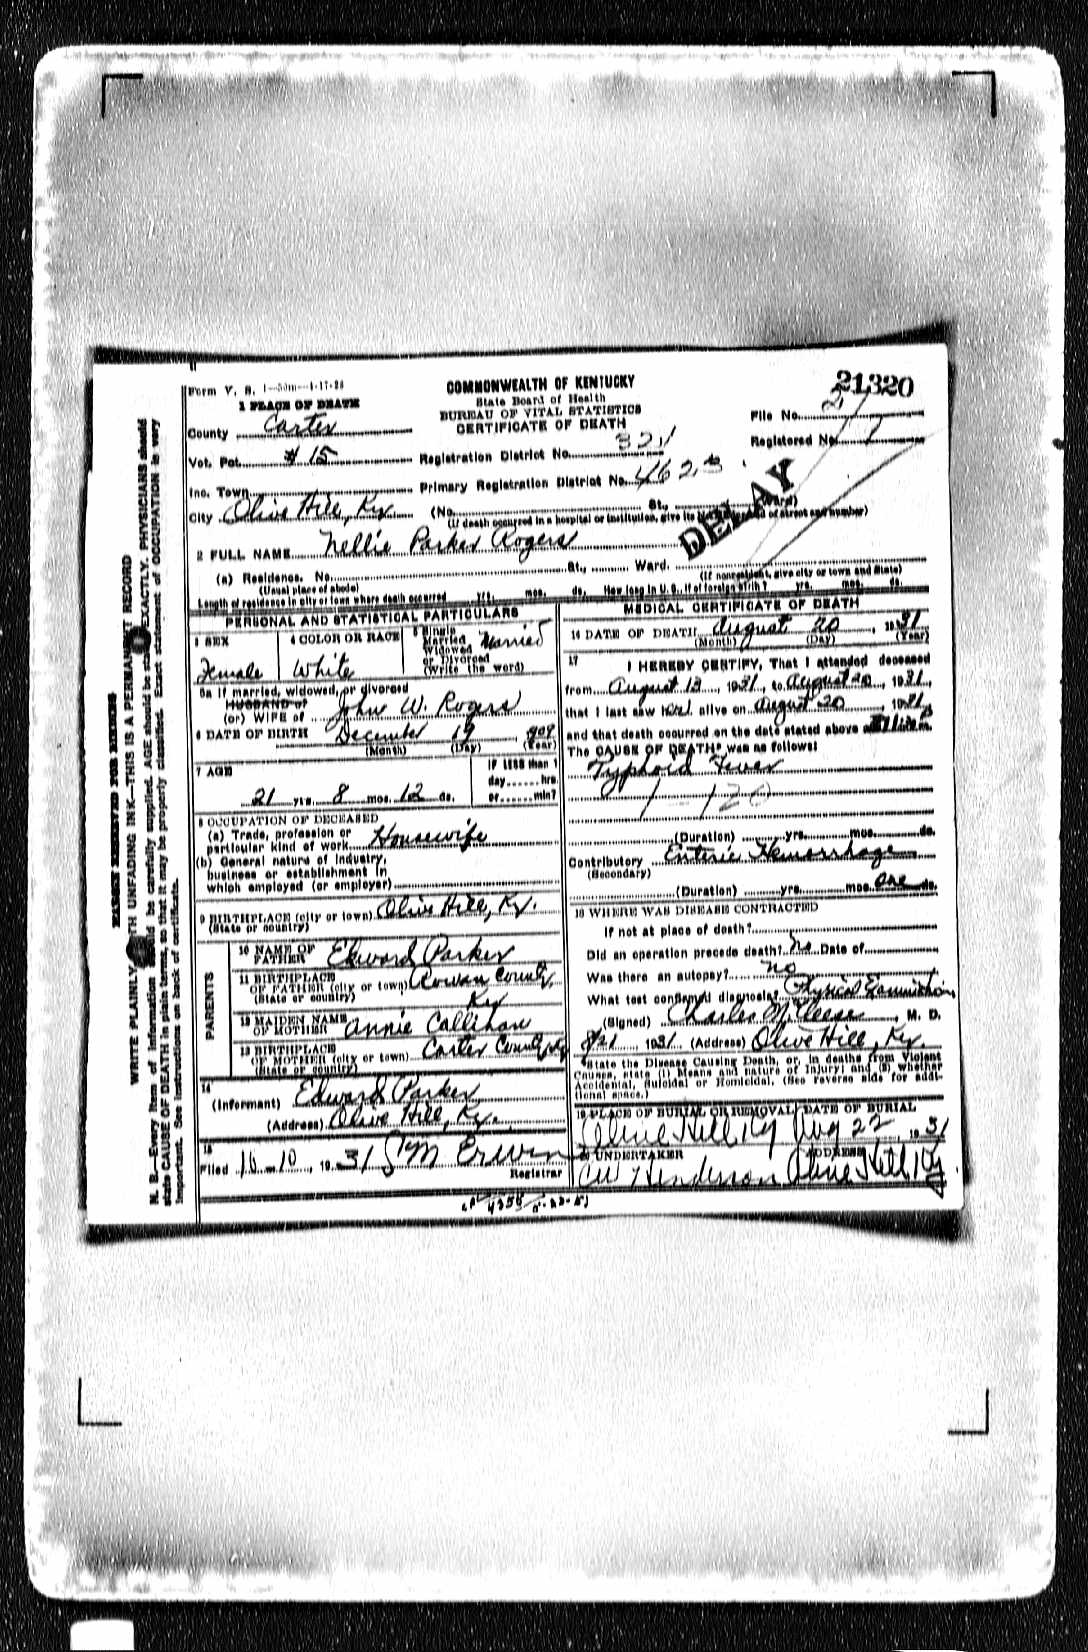 21320
Form V. S. 1-50m-4-17-28
COMMONWEALTH OF KENTUCKY
State Board of Health
BUREAU OF VITAL STATISTICS
CERTIFICATE OF DEATH
1 PLACE OF DEATH
County Carter
Vot. Pct. # 15
Inc. Town
City Olive Hill, Ky.
File No. 21
Registered No.
Registration District No. 321
Primary Registration District No. 4623
DELAY
(No. St., Ward)
(If death occurred in a hospital or institution, give its of street and number)
2 FULL NAME Nellie Parker Rogers
(a) Residence. No. St., Ward.
(Usual place of abode) (If nonresident, give city or town and State)
Length of residence in city or town where death occurred yrs. mos. ds. How long in U.S., if of foreign birth? yrs. mos. ds.
PERSONAL AND STATISTICAL PARTICULARS
3 SEX
Female
4 COLOR OR RACE
White
5 Single
Married
Widowed
or Divorced
(Write the word)
Married
5a If married, widowed, or divorced
HUSBAND of
(or) WIFE of John W. Rogers
6 DATE OF BIRTH December 19, 1909
(Month) (Day) (Year)
7 AGE
21 yrs. 8 mos. 12 ds.
IF LESS than 1
day hrs.
or min?
8 OCCUPATION OF DECEASED
(a) Trade, profession or
particular kind of work Housewife
(b) General nature of industry,
business or establishment in
which employed (or employer)
9 BIRTHPLACE (city or town) Olive Hill, Ky.
(State or country)
PARENTS
10 NAME OF
FATHER Edward Parker
11 BIRTHPLACE
OF FATHER (city or town) Rowan County,
(State or country) Ky
12 MAIDEN NAME
OF MOTHER Annie Callihan
13 BIRTHPLACE
OF MOTHER (city or town) Carter County, Ky
(State or country)
14
(Informant) Edward Parker
(Address) Olive Hill, Ky.
15
Filed 10-10, 1931 S M Erwin
Registrar
MEDICAL CERTIFICATE OF DEATH
16 DATE OF DEATH August 20, 1931
(Month) (Day) (Year)
17
I HEREBY CERTIFY, That I attended deceased
from August 13, 1931, to August 20, 1931,
that I last saw her alive on August 20, 1931,
and that death occurred on the date stated above
The CAUSE OF DEATH* was as follows:
Typhoid Fever
1 - 120
(Duration) yrs. mos. ds.
Contributory Enteric Hemorrhage
(Secondary)
(Duration) yrs. mos. one ds.
18 WHERE WAS DISEASE CONTRACTED
If not at place of death?
Did an operation precede death? No Date of
Was there an autopsy? no
What test confirmed diagnosis? Physical Examination
(Signed) Charles McCleese, M. D.
8/21, 1931 (Address) Olive Hill, Ky.
*State the Disease Causing Death, or, in deaths from Violent
Causes, state (1) Means and nature of Injury; and (2) whether
Accidental, Suicidal or Homicidal. (See reverse side for addi-
tional space.)
19 PLACE OF BURIAL OR REMOVAL DATE OF BURIAL
Olive Hill Ky Aug 22, 1931
20 UNDERTAKER ADDRESS
CW Henderson Olive Hill Ky.
MARGIN RESERVED FOR BINDING
WRITE PLAINLY WITH UNFADING INK—THIS IS A PERMANENT RECORD
N. B.—Every item of information should be carefully supplied. AGE should be stated EXACTLY. PHYSICIANS should
state CAUSE OF DEATH in plain terms, so that it may be properly classified. Exact statement of OCCUPATION is very
important. See instructions on back of certificate.